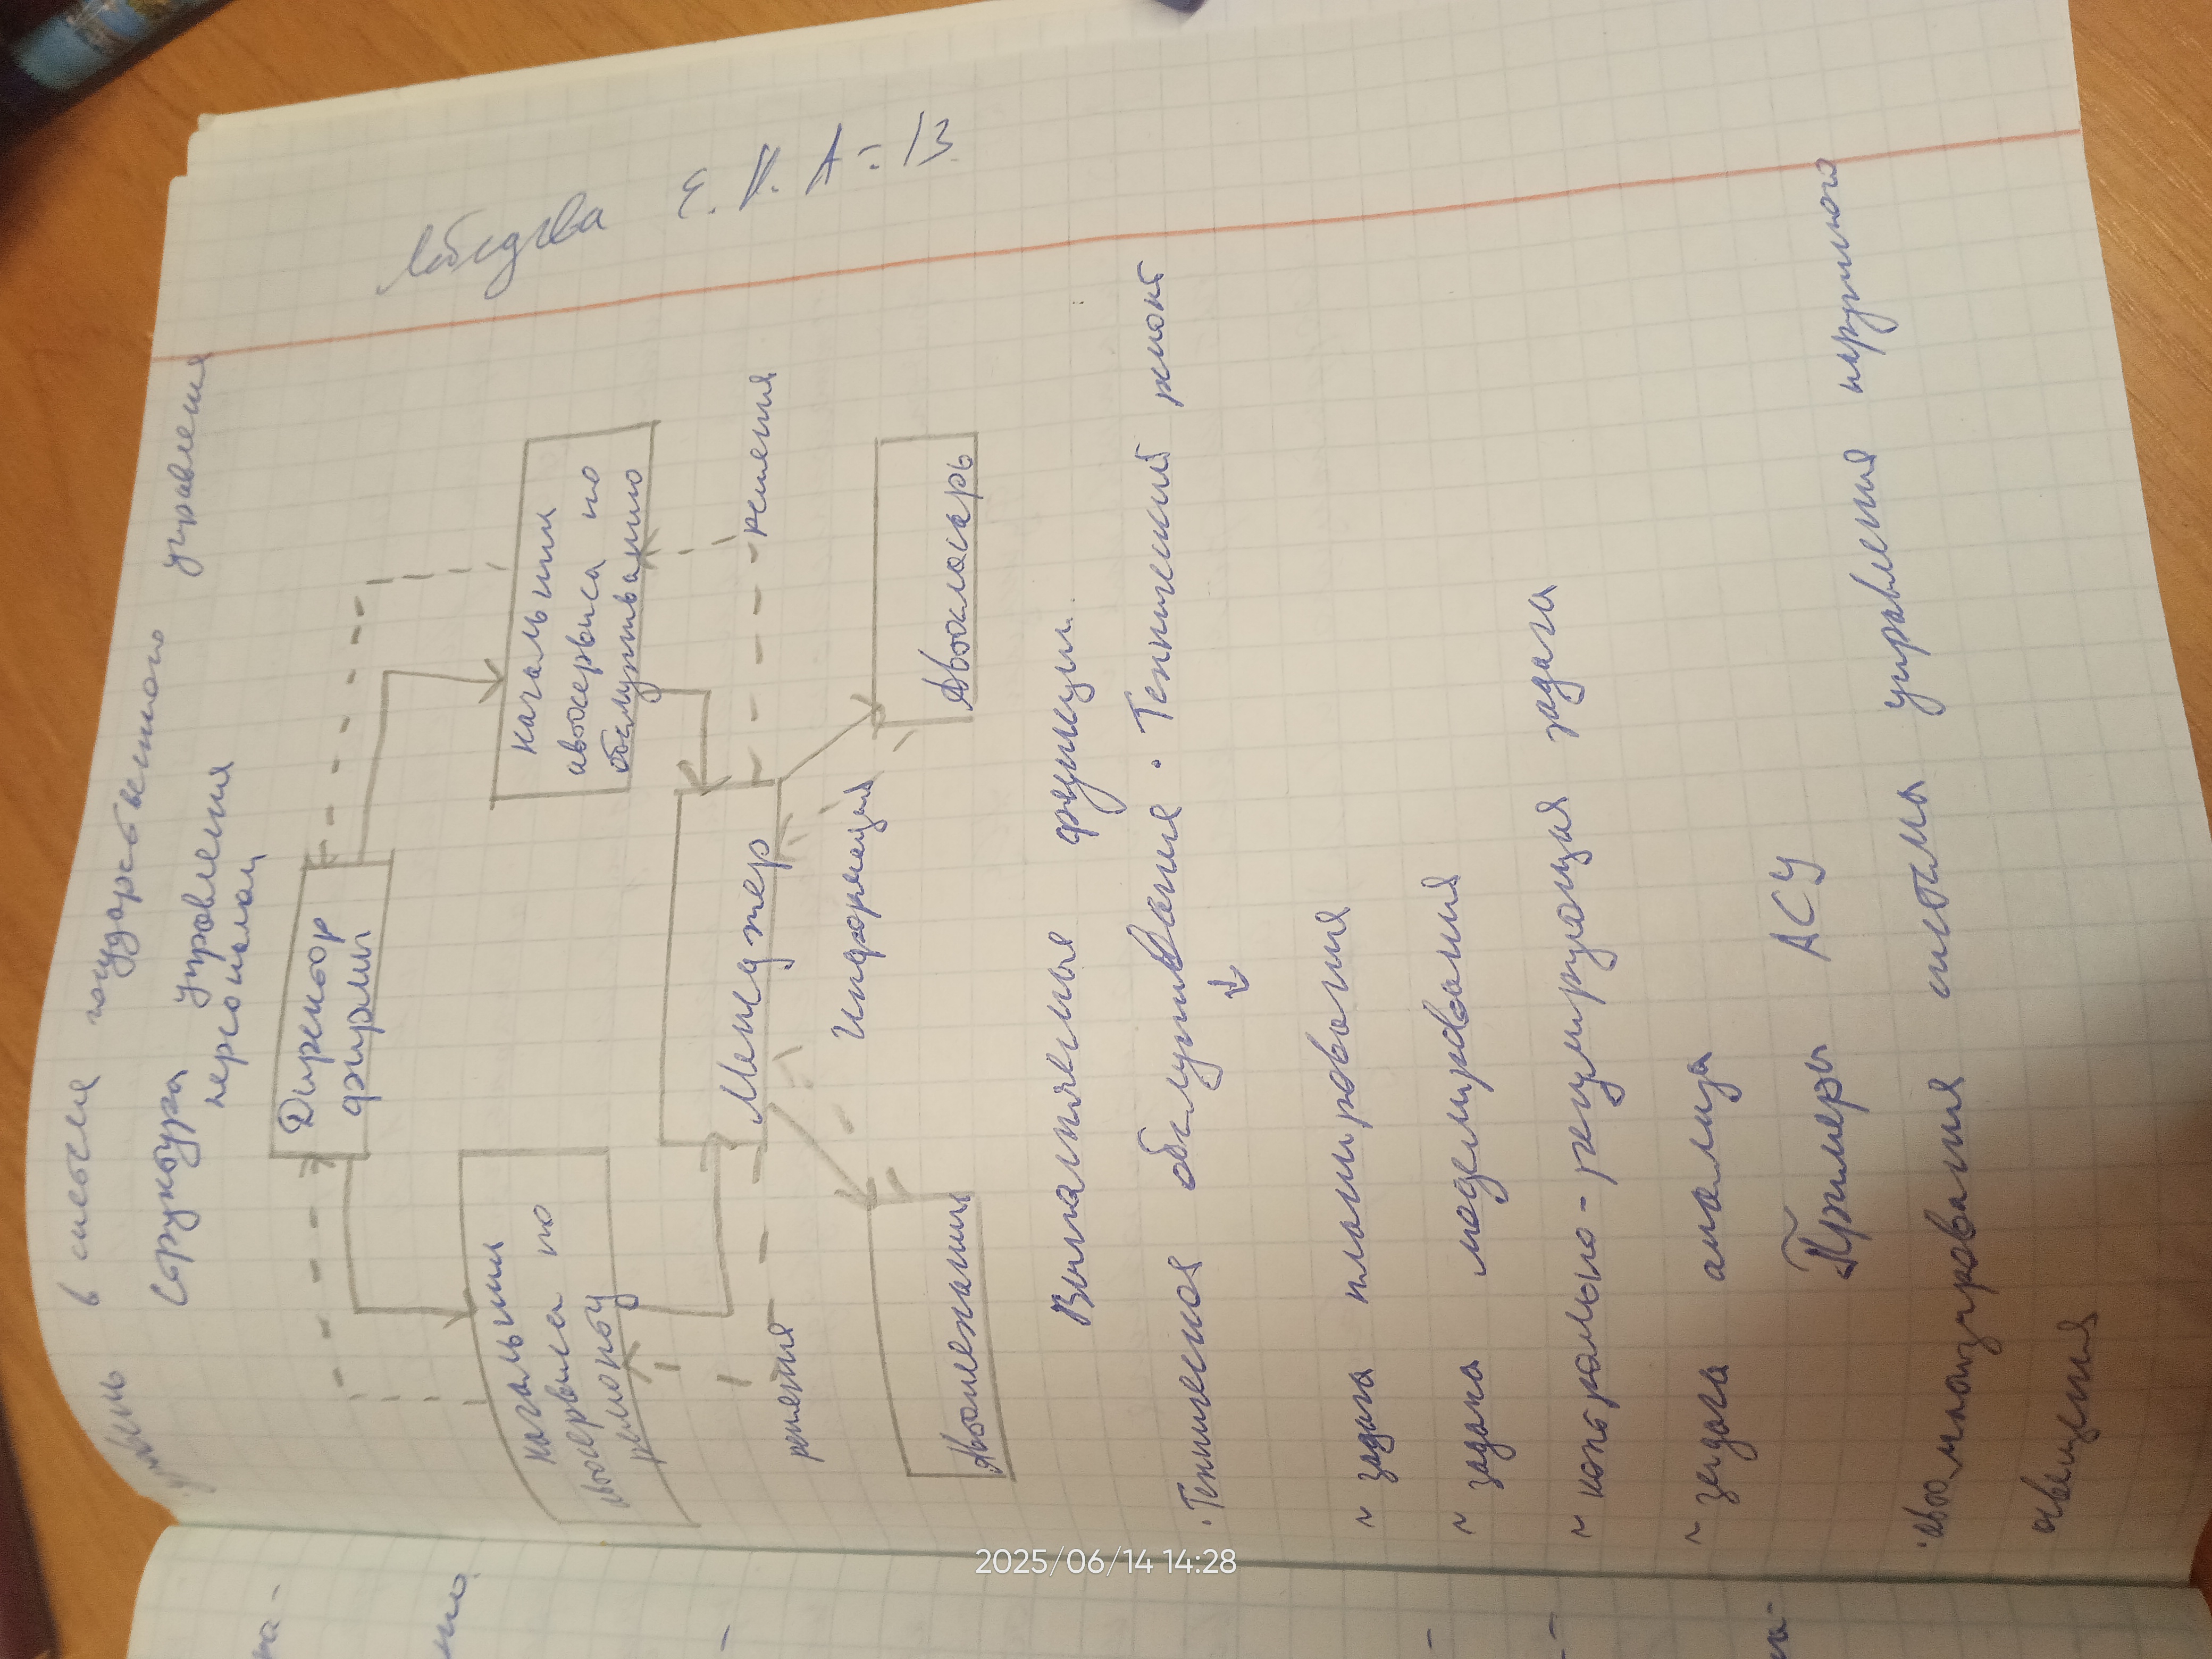 уровень в системе государственного управления
Структура управления
персоналом
Директор
фирмы
начальник
автосервиса по
ремонту
начальник
автосервиса по
обслуживанию
Менеджер
решения
решения
Информация
Автомеханик
Автослесарь
Выполняемые функции
· Техническое обслуживание · Технический ремонт
↓
~ задача планирования
~ задача моделирования
~ контрольно-регулирующая задача
~ задача анализа
Примеры АСУ
· автоматизирования системы управления наружного
освещения
2025/06/14 14:28